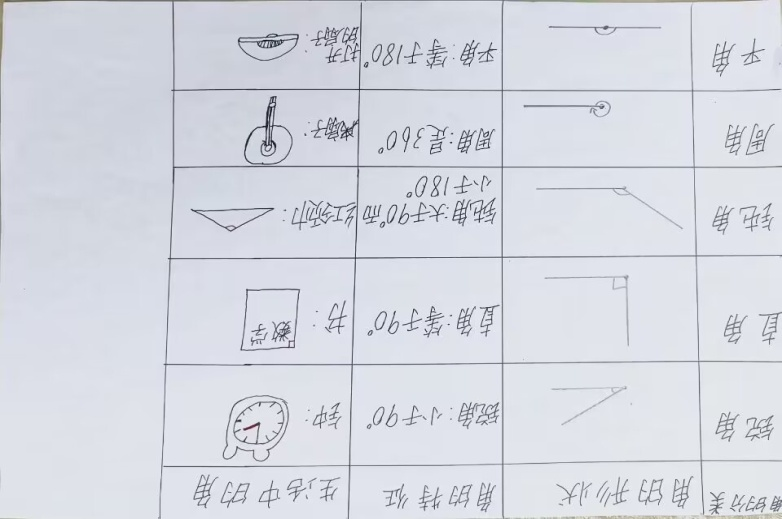 角的分类
角的形状
角的特征
生活中的角
锐角
锐角:小于90°
钟:
直角
直角:等于90°
书:
数学
钝角
钝角:大于90°而
小于180°
红领巾:
周角
周角:是360°
扇子:
平角
平角:等于180°
打开
的扇子: